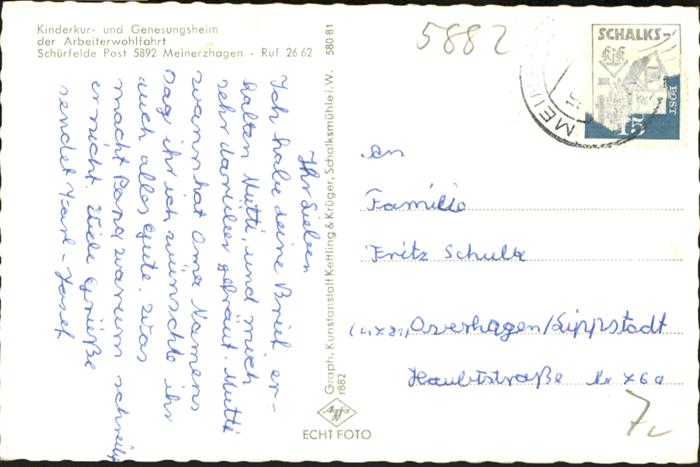 Kinderkur- und Genesungsheim
der Arbeiterwohlfahrt
Schürfelde Post 5892 Meinerzhagen - Ruf 26 62
580 81
5882
SCHALKS-
POST
MEIN
Ihr Lieben
Ich habe deine Brief er-
halten Mutti, und mich
sehr darüber gefräut. Mutti
wann hat Oma Namens
Dag ihr ich wünschte ihr
auch alles gute. Was
macht Papa warum schreibt
er nicht. Viele Grüße
sendet Karl-Josef
Graph. Kunstanstalt Kettling & Krüger, Schalksmühle i. W.
r882
Agfa
ECHT FOTO
An
Familie
Fritz Schulte
Overhagen/Lippstadt
Haubtstraße Nr 76a
7,-